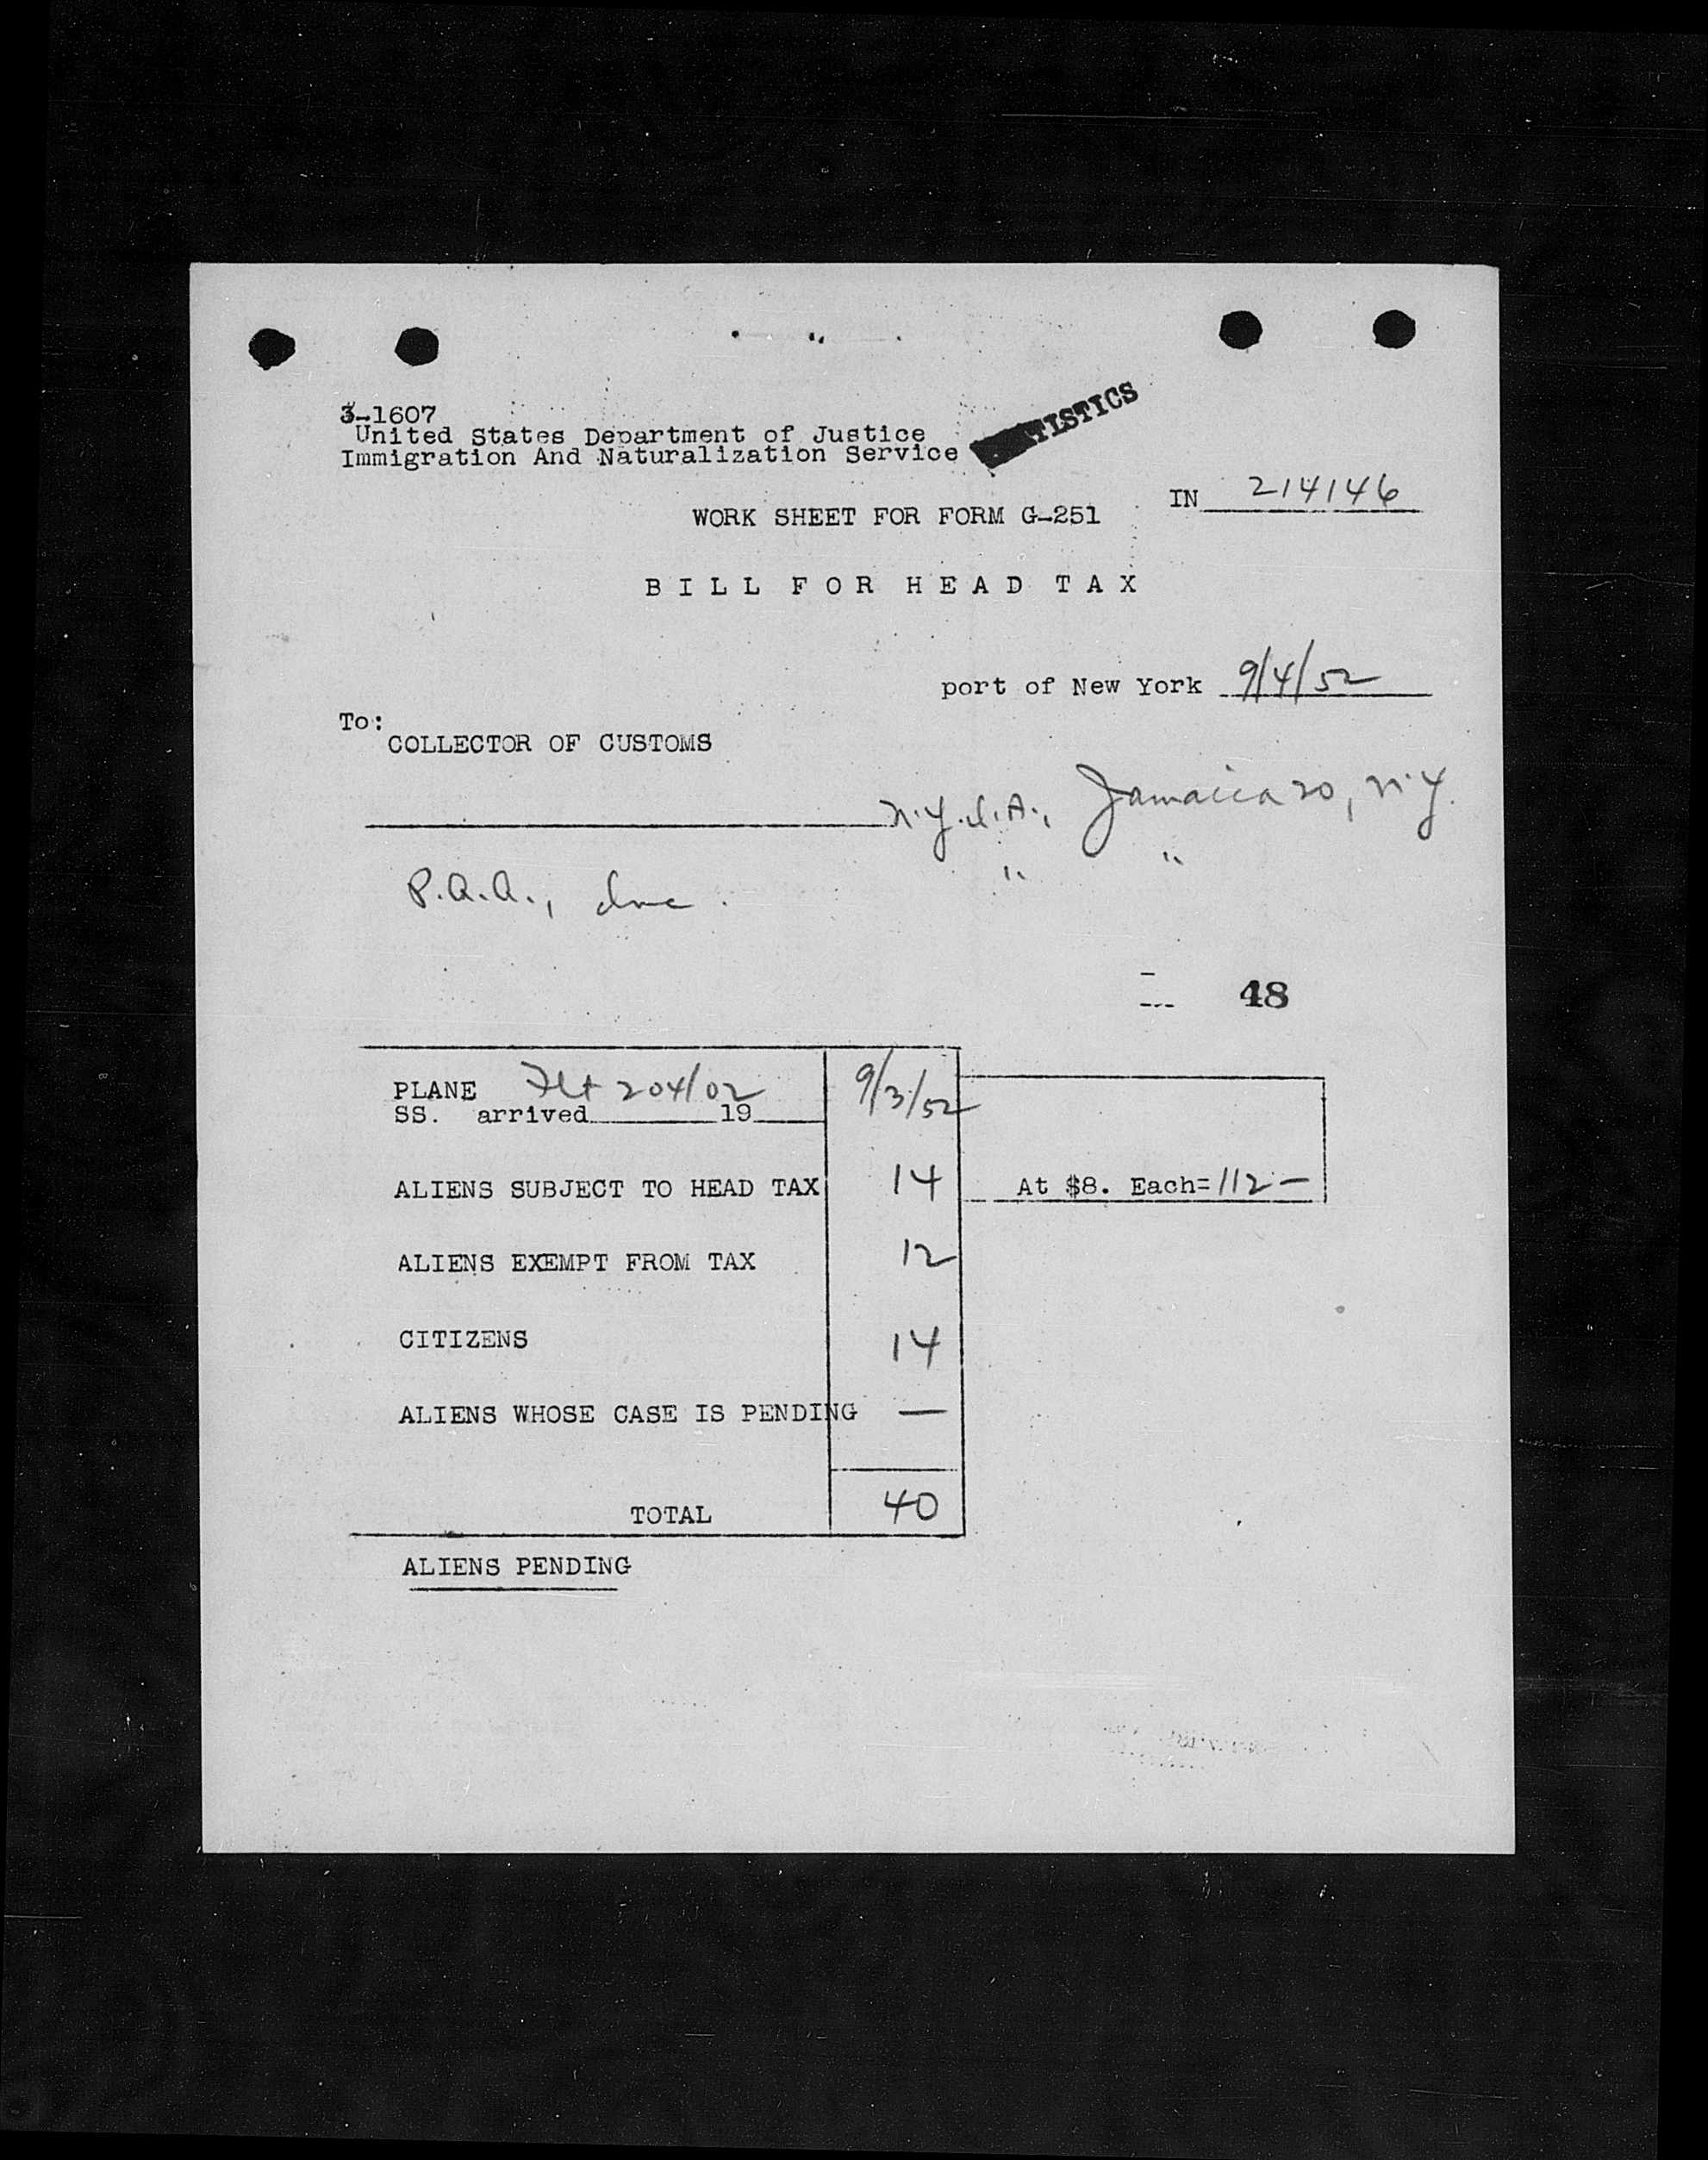 3-1607
United States Department of Justice
Immigration And Naturalization Service
STATISTICS
IN 214146
WORK SHEET FOR FORM G-251
BILL FOR HEAD TAX
port of New York 9/4/52
To:
COLLECTOR OF CUSTOMS
N.Y.I.A., Jamaica 20, N.Y.
P.A.A., Inc. " "
48
PLANE Flt 204/02 9/3/52
SS. arrived 19
ALIENS SUBJECT TO HEAD TAX 14 At $8. Each= 112 —
ALIENS EXEMPT FROM TAX 12
CITIZENS 14
ALIENS WHOSE CASE IS PENDING —
TOTAL 40
ALIENS PENDING